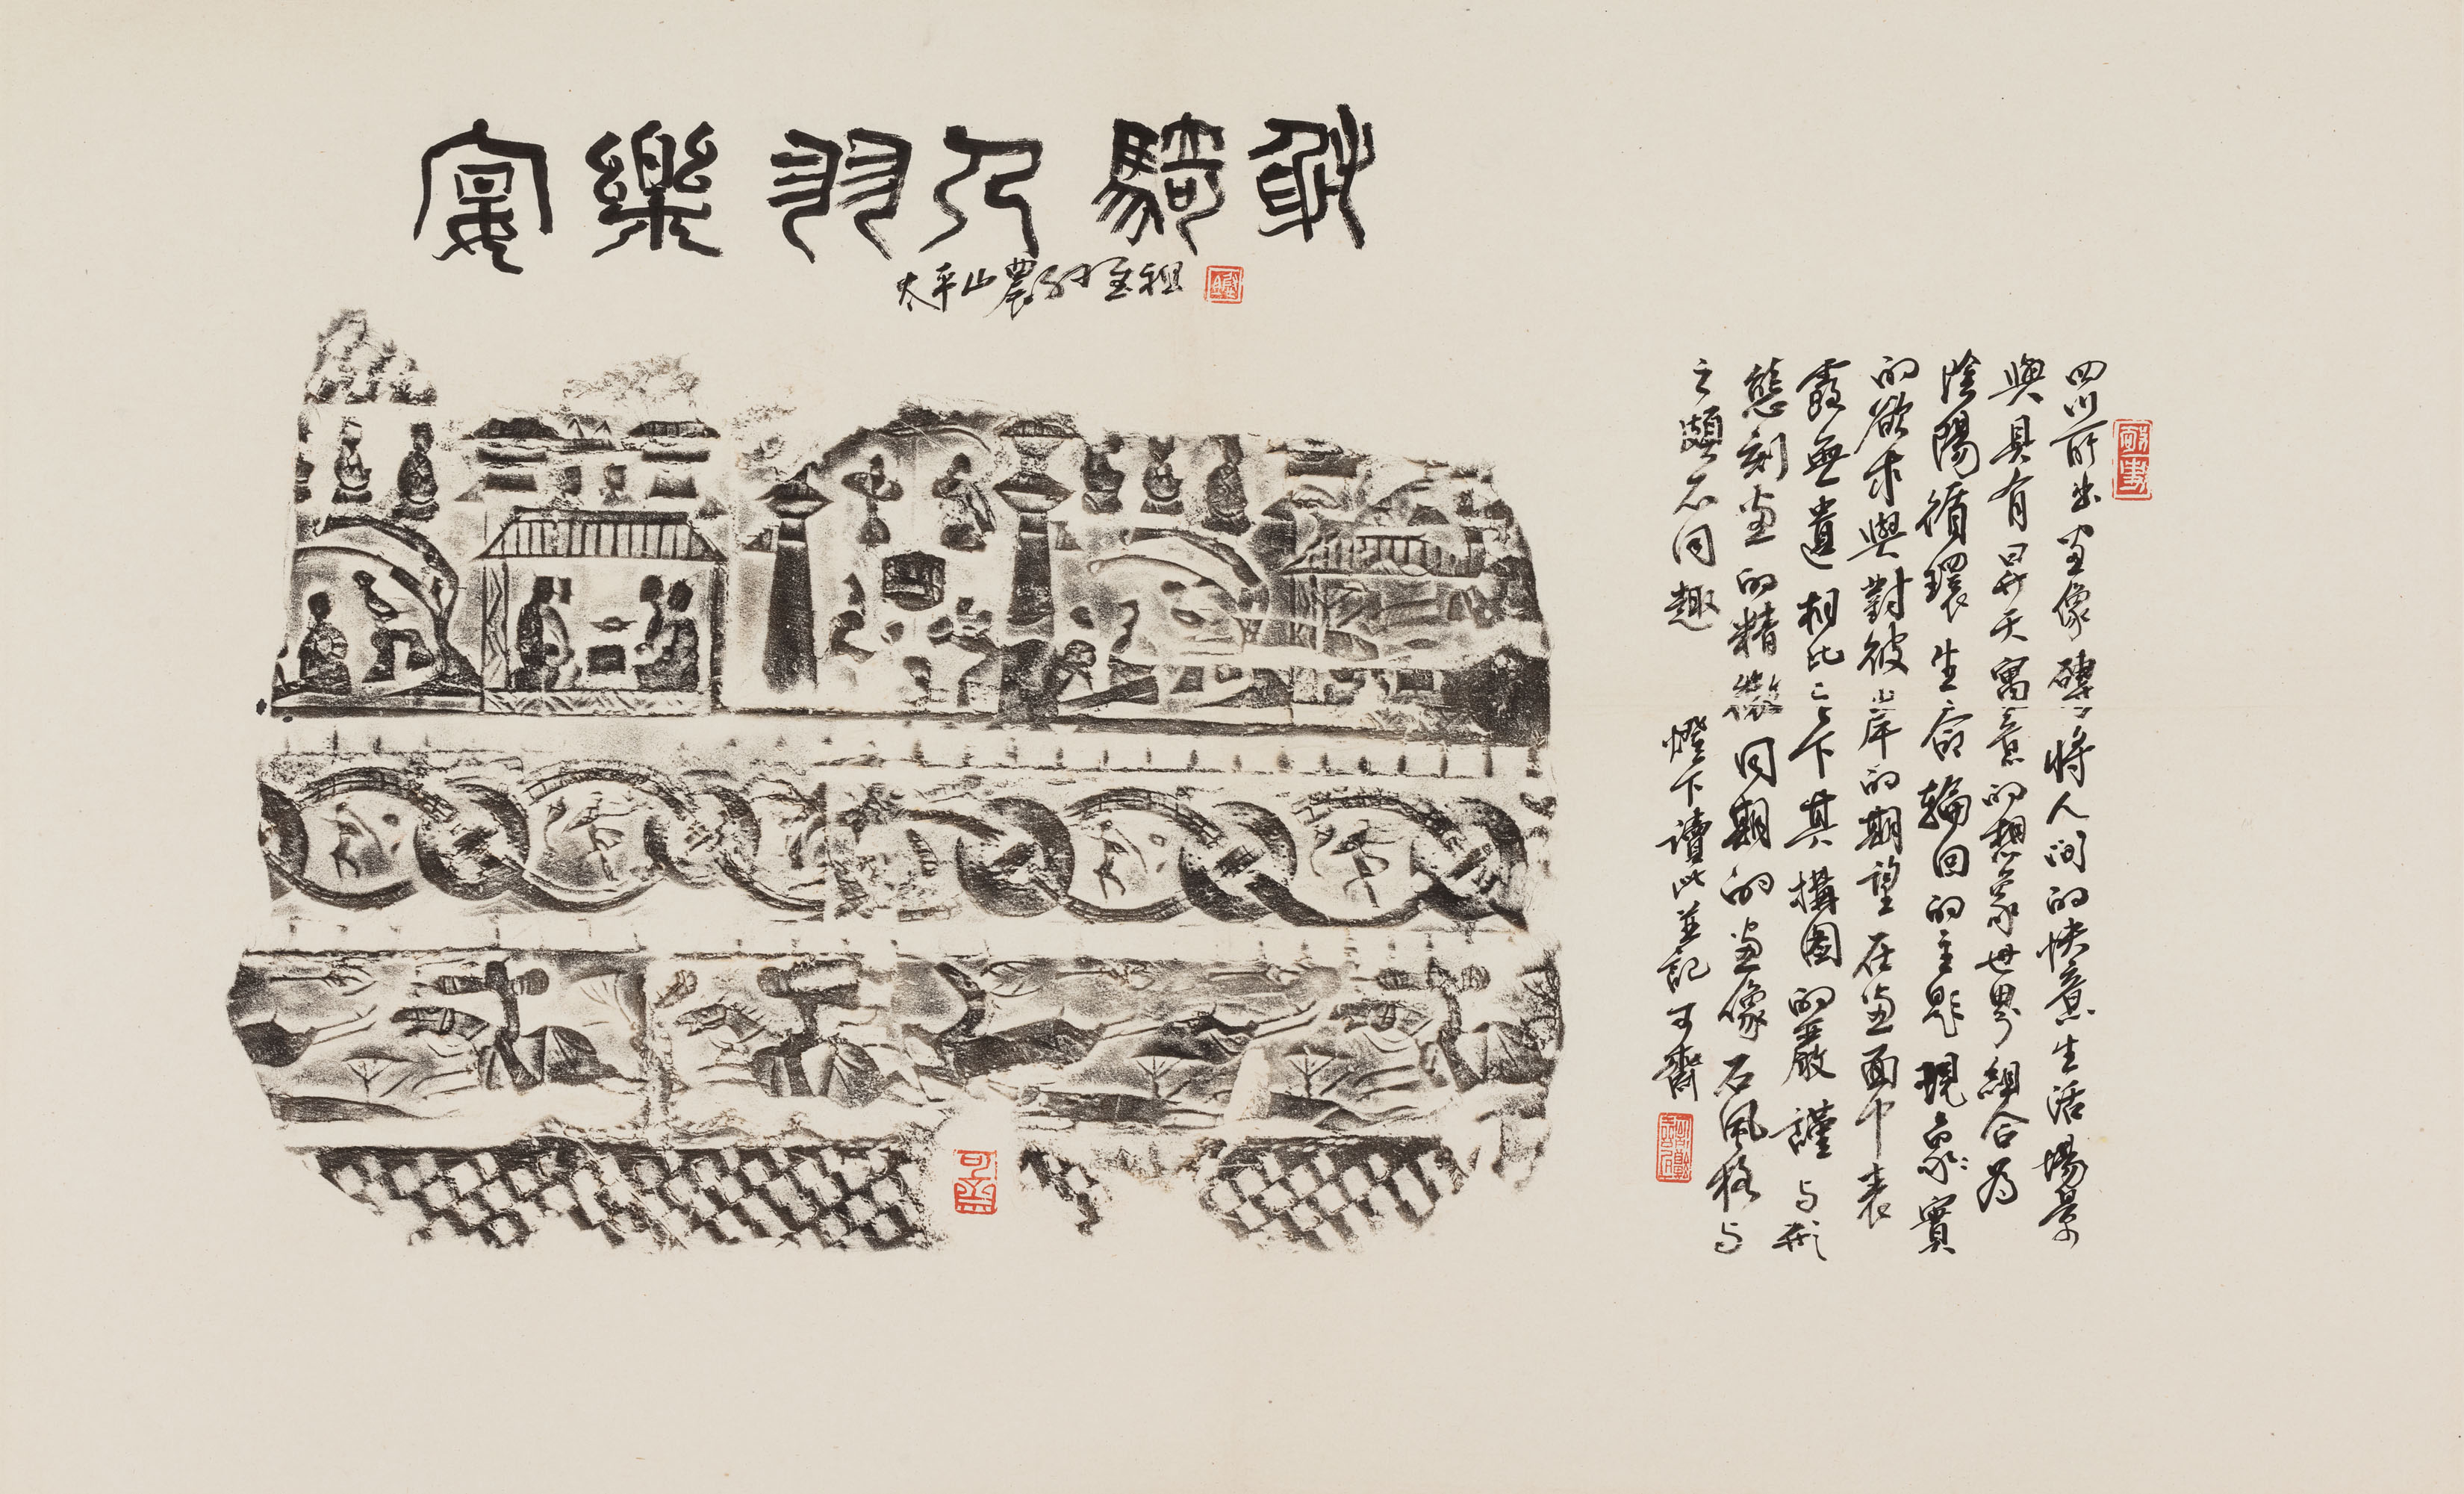 騎人羽樂宴
太平山農
四川所出畫像磚將人间的快意生活場景
與具有昇天寓意的想象世界組合為
陰陽循環生命輪回的主題現象實
的欲求與對彼岸的期望在畫面中表
露無遺相比之下其構圖的嚴謹与形
態刻畫的精微同期的畫像石風格与
之頗不同趣 燈下讀此並記 可齋